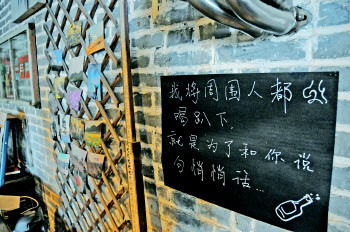 我将周围人都
喝趴下，
就是为了和你说
句悄悄话...